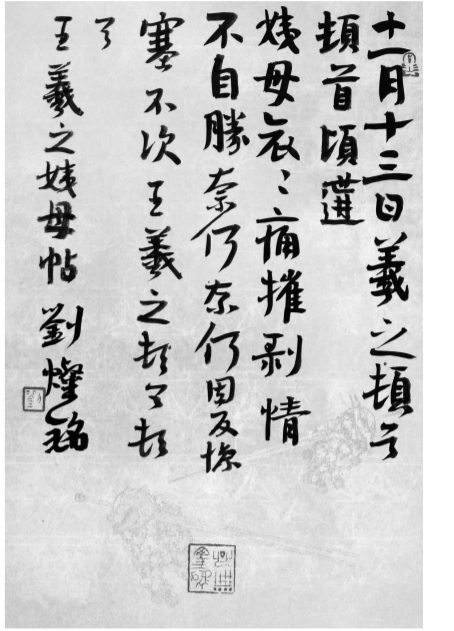 十一月十三日羲之頓首
頓首頃遘
姨母哀〻痛摧剥情
不自勝奈何奈何因反慘
塞不次王羲之頓首頓
首
王羲之姨母帖 劉燦銘